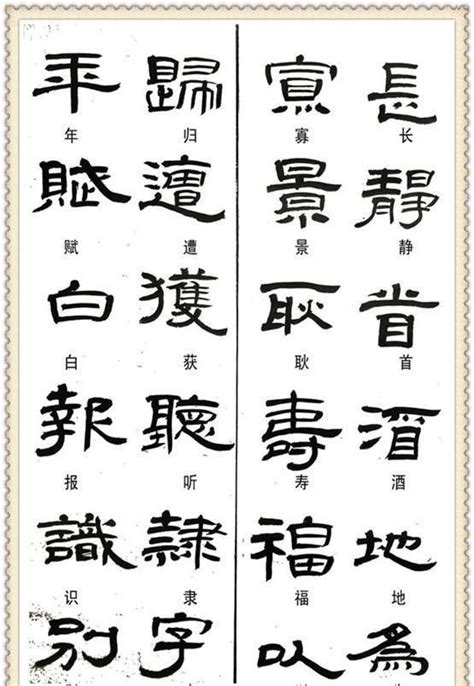 年 歸 寡 長
年 归 寡 长
賦 遭 景 靜
赋 遭 景 静
白 獲 耿 首
白 获 耿 首
報 聽 壽 酒
报 听 寿 酒
識 隸 福 地
识 隶 福 地
別 字 以 為